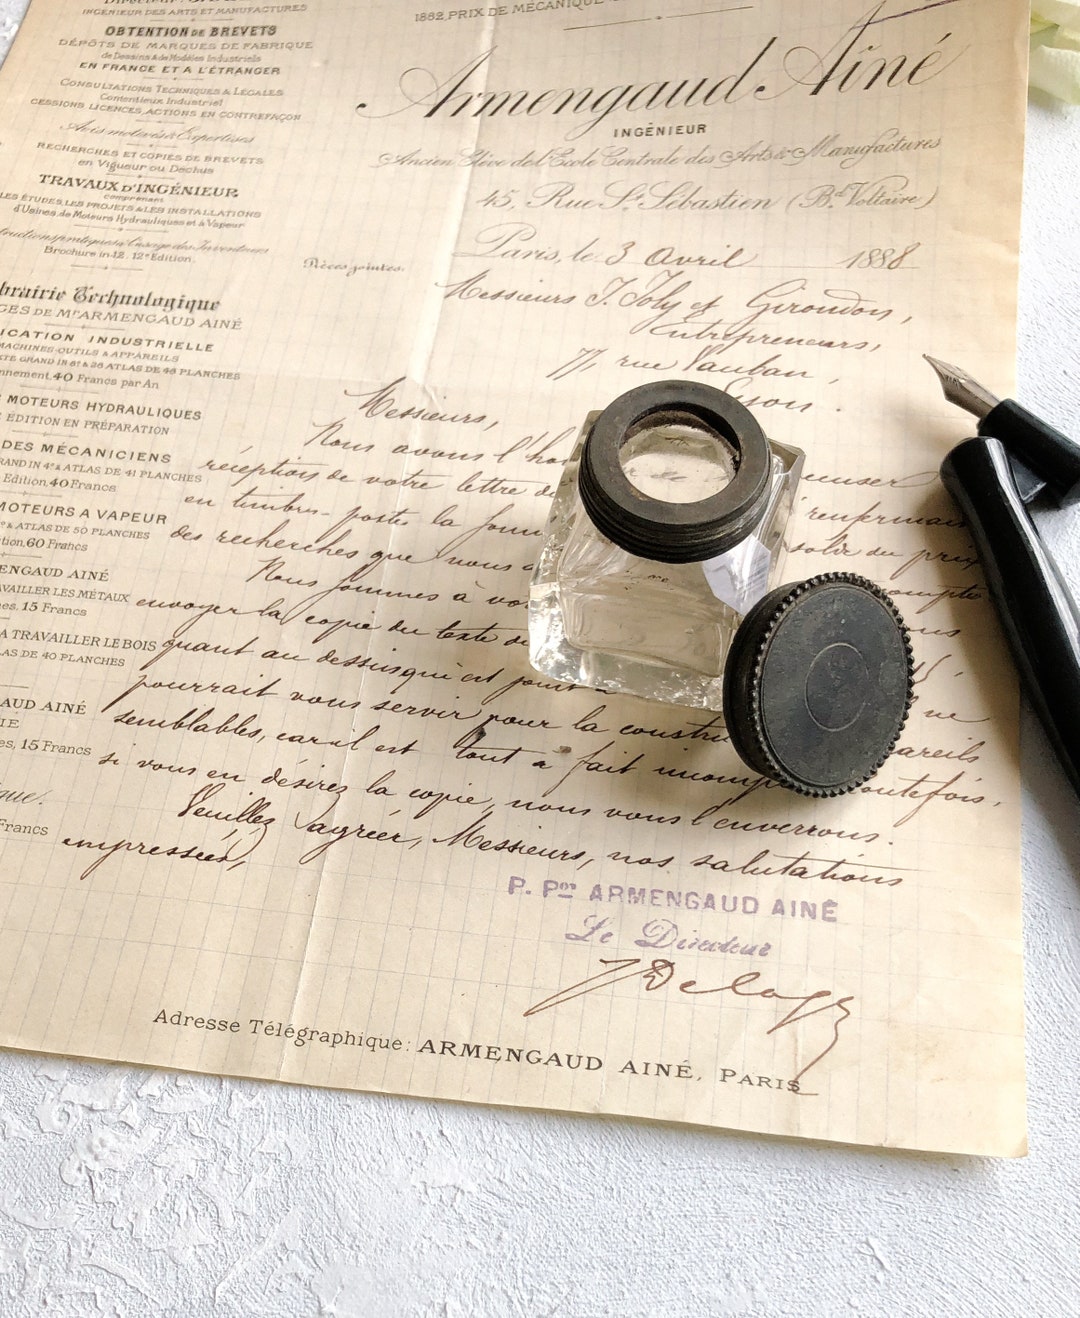 INGÉNIEUR DES ARTS ET MANUFACTURES
OBTENTION DE BREVETS
DÉPÔTS DE MARQUES DE FABRIQUE
de Dessins & de Modèles Industriels
EN FRANCE ET A L'ÉTRANGER
CONSULTATIONS TECHNIQUES & LÉGALES
Contentieux Industriel
CESSIONS, LICENCES, ACTIONS EN CONTREFAÇON
Avis motivés & Expertises
RECHERCHES ET COPIES DE BREVETS
en Vigueur ou Déchus
TRAVAUX D'INGÉNIEUR
comprenant
LES ÉTUDES, LES PROJETS & LES INSTALLATIONS
d'Usines de Moteurs Hydrauliques et à Vapeur
à l'usage des Inventeurs
Brochure in-12. 12e Édition.
Technologique
DE Mr ARMENGAUD AINÉ
INDUSTRIELLE
MACHINES OUTILS & APPAREILS
GRAND IN 8° & 26 ATLAS DE 46 PLANCHES
40 Francs par An
MOTEURS HYDRAULIQUES
ÉDITION EN PRÉPARATION
DES MÉCANICIENS
IN 4° & ATLAS DE 41 PLANCHES
Édition, 40 Francs
MOTEURS A VAPEUR
& ATLAS DE 50 PLANCHES
60 Francs
AINÉ
LES MÉTAUX
15 Francs
A TRAVAILLER LE BOIS
DE 40 PLANCHES
AINÉ
15 Francs
Francs
1882, PRIX DE MÉCANIQUE
Armengaud Aîné
INGÉNIEUR
Ancien Élève de l'École Centrale des Arts & Manufactures
45, Rue St Sébastien (Bd Voltaire)
Pièces jointes.
Paris, le 3 Avril 1888
Messieurs J. Joly et Girondon,
Entrepreneurs,
77, rue Vauban,
Messieurs,
Nous avons l'hon
réception de votre lettre renfermant
en timbres-postes la solde du prix
des recherches que nous compte
Nous sommes à vo
envoyer la copie du texte du
quant au dessins qui est joint ne
pourrait vous servir pour la constru areils
semblables, car il est tout a fait incomp outefois,
si vous en désirez la copie, nous vous l'enverrons.
Veuillez agréer, Messieurs, nos salutations
empressées,
P. Pon ARMENGAUD AINÉ
Le Directeur
Adresse Télégraphique: ARMENGAUD AINÉ, PARIS